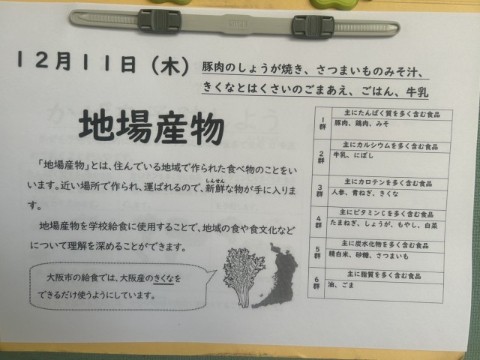 12月11日（木） 豚肉のしょうが焼き、さつまいものみそ汁、
きくなとはくさいのごまあえ、ごはん、牛乳
地場産物
「地場産物」とは、住んでいる地域で作られた食べ物のことをい
います。近い場所で作られ、運ばれるので、新鮮な物が手に入りま
しんせん
す。
地場産物を学校給食に使用することで、地域の食や食文化など
について理解を深めることができます。
大阪市の給食では、大阪産のきくなを
できるだけ使うようにしています。
1群 主にたんぱく質を多く含む食品
豚肉、鶏肉、みそ
2群 主にカルシウムを多く含む食品
牛乳、にぼし
3群 主にカロテンを多く含む食品
人参、青ねぎ、きくな
4群 主にビタミンCを多く含む食品
たまねぎ、しょうが、もやし、白菜
5群 主に炭水化物を多く含む食品
精白米、砂糖、さつまいも
6群 主に脂質を多く含む食品
油、ごま